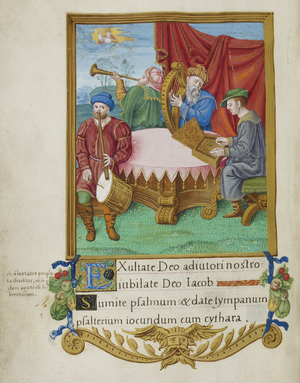 EXultate Deo adiutori nostro
iubilate Deo Iacob
Sumite psalmum: & date tympanum
psalterium iocundum cum cythara.